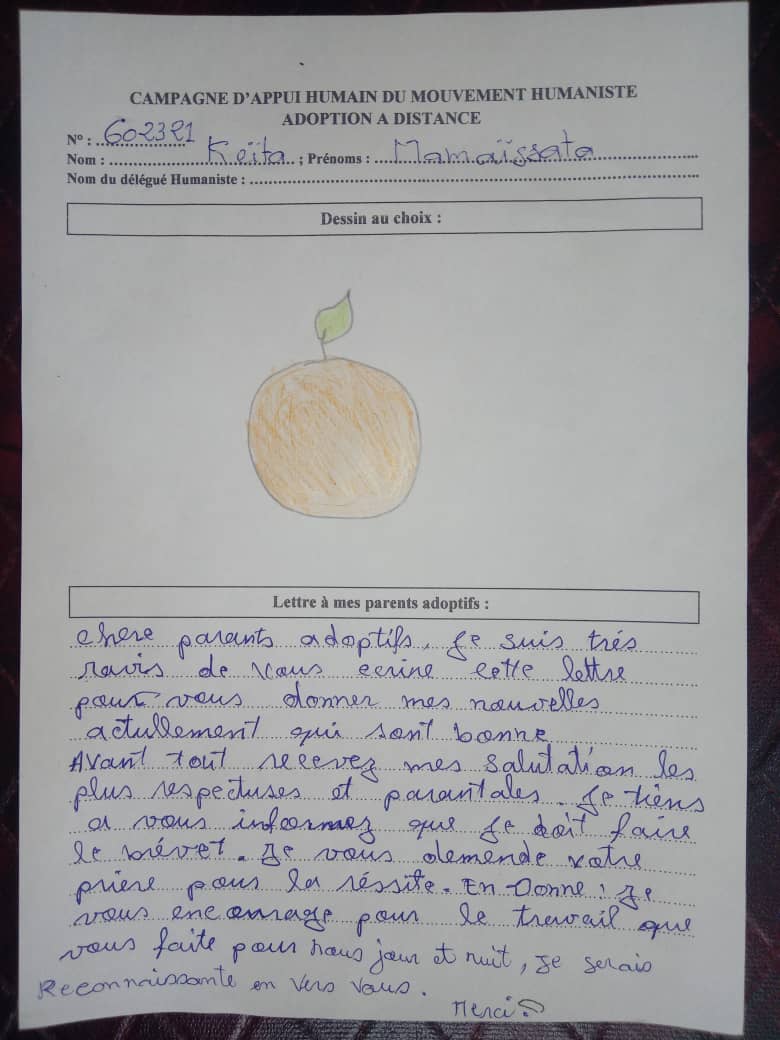 CAMPAGNE D'APPUI HUMAIN DU MOUVEMENT HUMANISTE
ADOPTION A DISTANCE
N° : 602321
Nom : Keïta ; Prénoms : Mamaïssata
Nom du délégué Humaniste :
Dessin au choix :
Lettre à mes parents adoptifs :
chere parants adoptifs, Je suis trés
ravis de vous ecrire cette lettre
pour vous donner mes nouvelles
actullement qui sont bonne
Avant tout recevez mes salutation les
plus respectuses et parantales. Je tiens
a vous informez que Je doit faire
le brévet. Je vous demende votre
prière pour la réssite. En Donne : Je
vous encourage pour le travail que
vous faite pour nous jour et nuit, Je serais
Reconnaissante en vers vous.
Merci